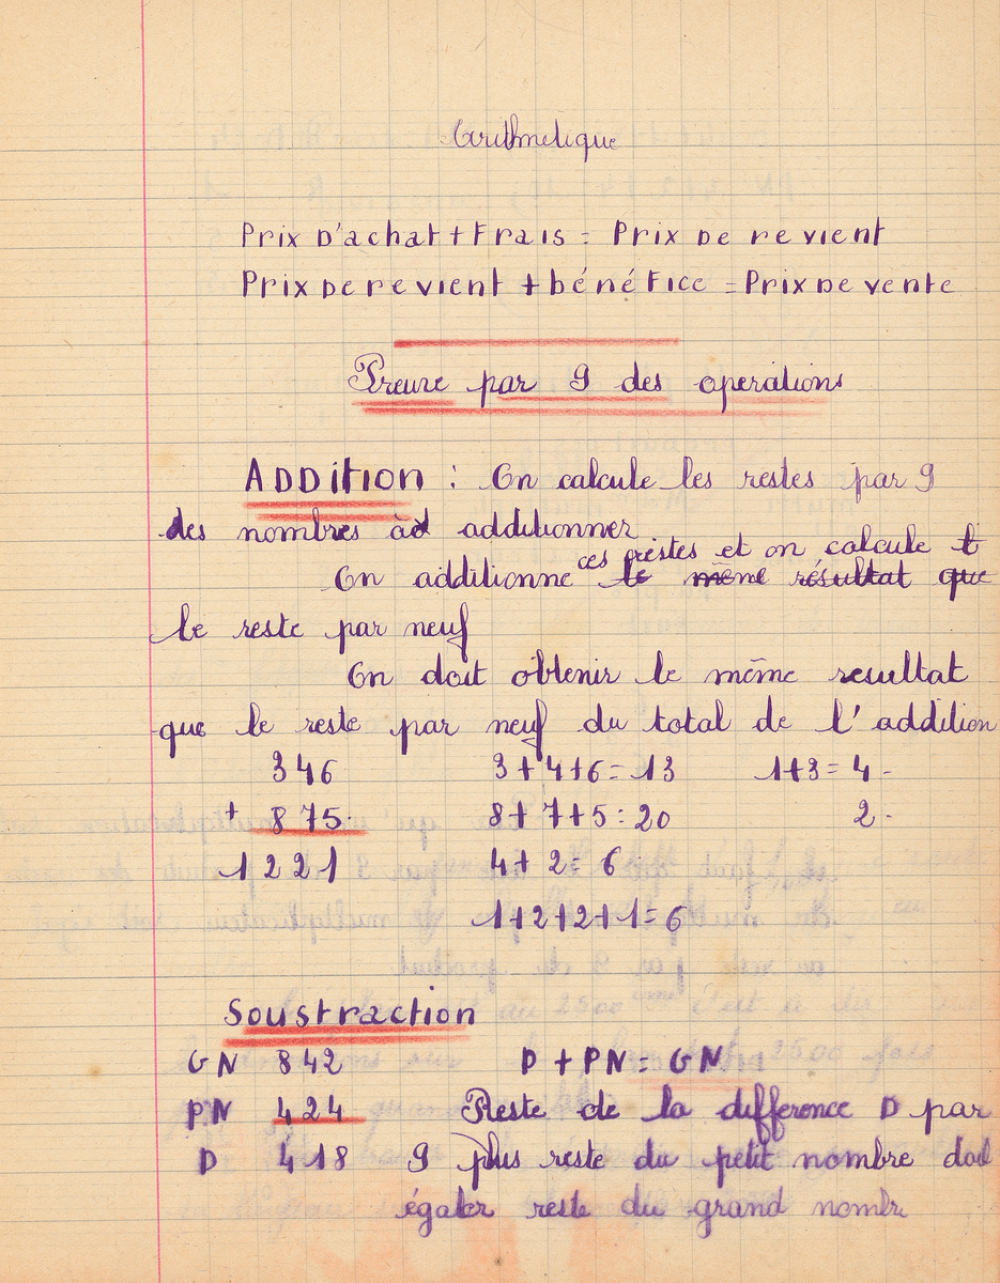 Arithmetique
Prix D'achat + Frais = Prix De revient
Prix De revient + bénéfice = Prix De vente
Preuve par 9 des operations
Addition : On calcule les restes par 9
des nombres àd additionner
ces restes et on calcule t
On additionne le même résultat que
le reste par neuf
On doit obtenir le même resultat
que le reste par neuf du total de l'addition
346 3+4+6=13 1+3=4
+ 875 8+7+5=20 2
1221 4+2=6
1+2+2+1=6
Soustraction
GN 842 D + PN = GN
PN 424 Reste de la différence D par
D 418 9 plus reste du petit nombre doit
égaler reste du grand nombr